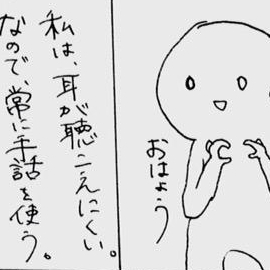 おはよう
私は、耳が聴こえにくい。
なので、常に手話を使う。